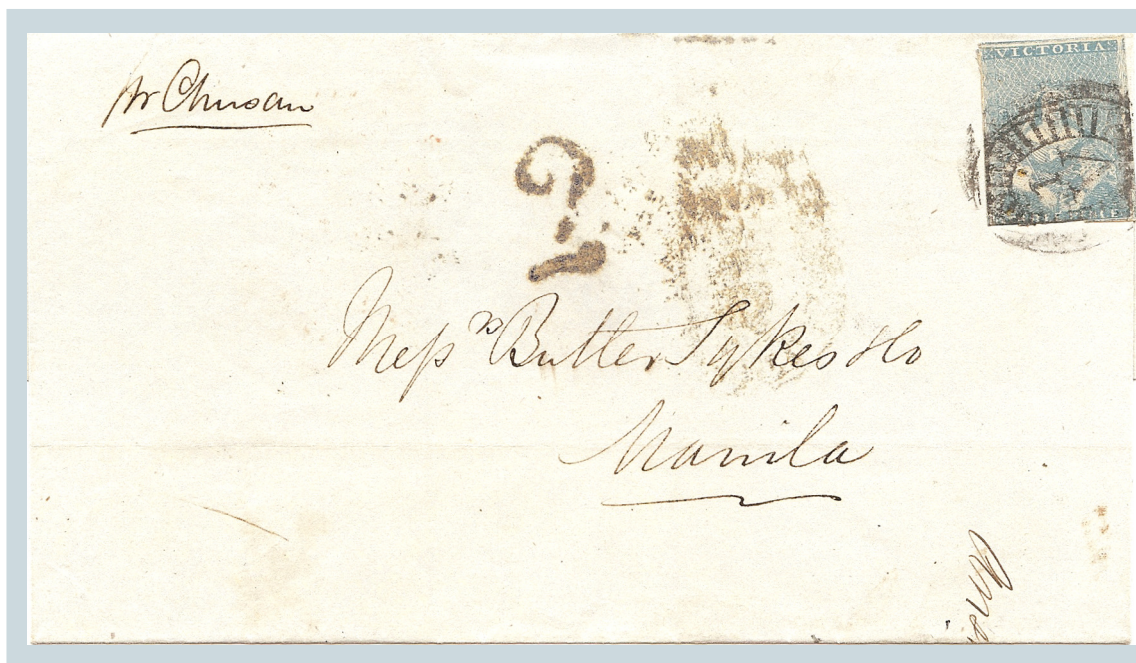 pr Chusan
VICTORIA
Messrs Butler Sykes & Co
Manila